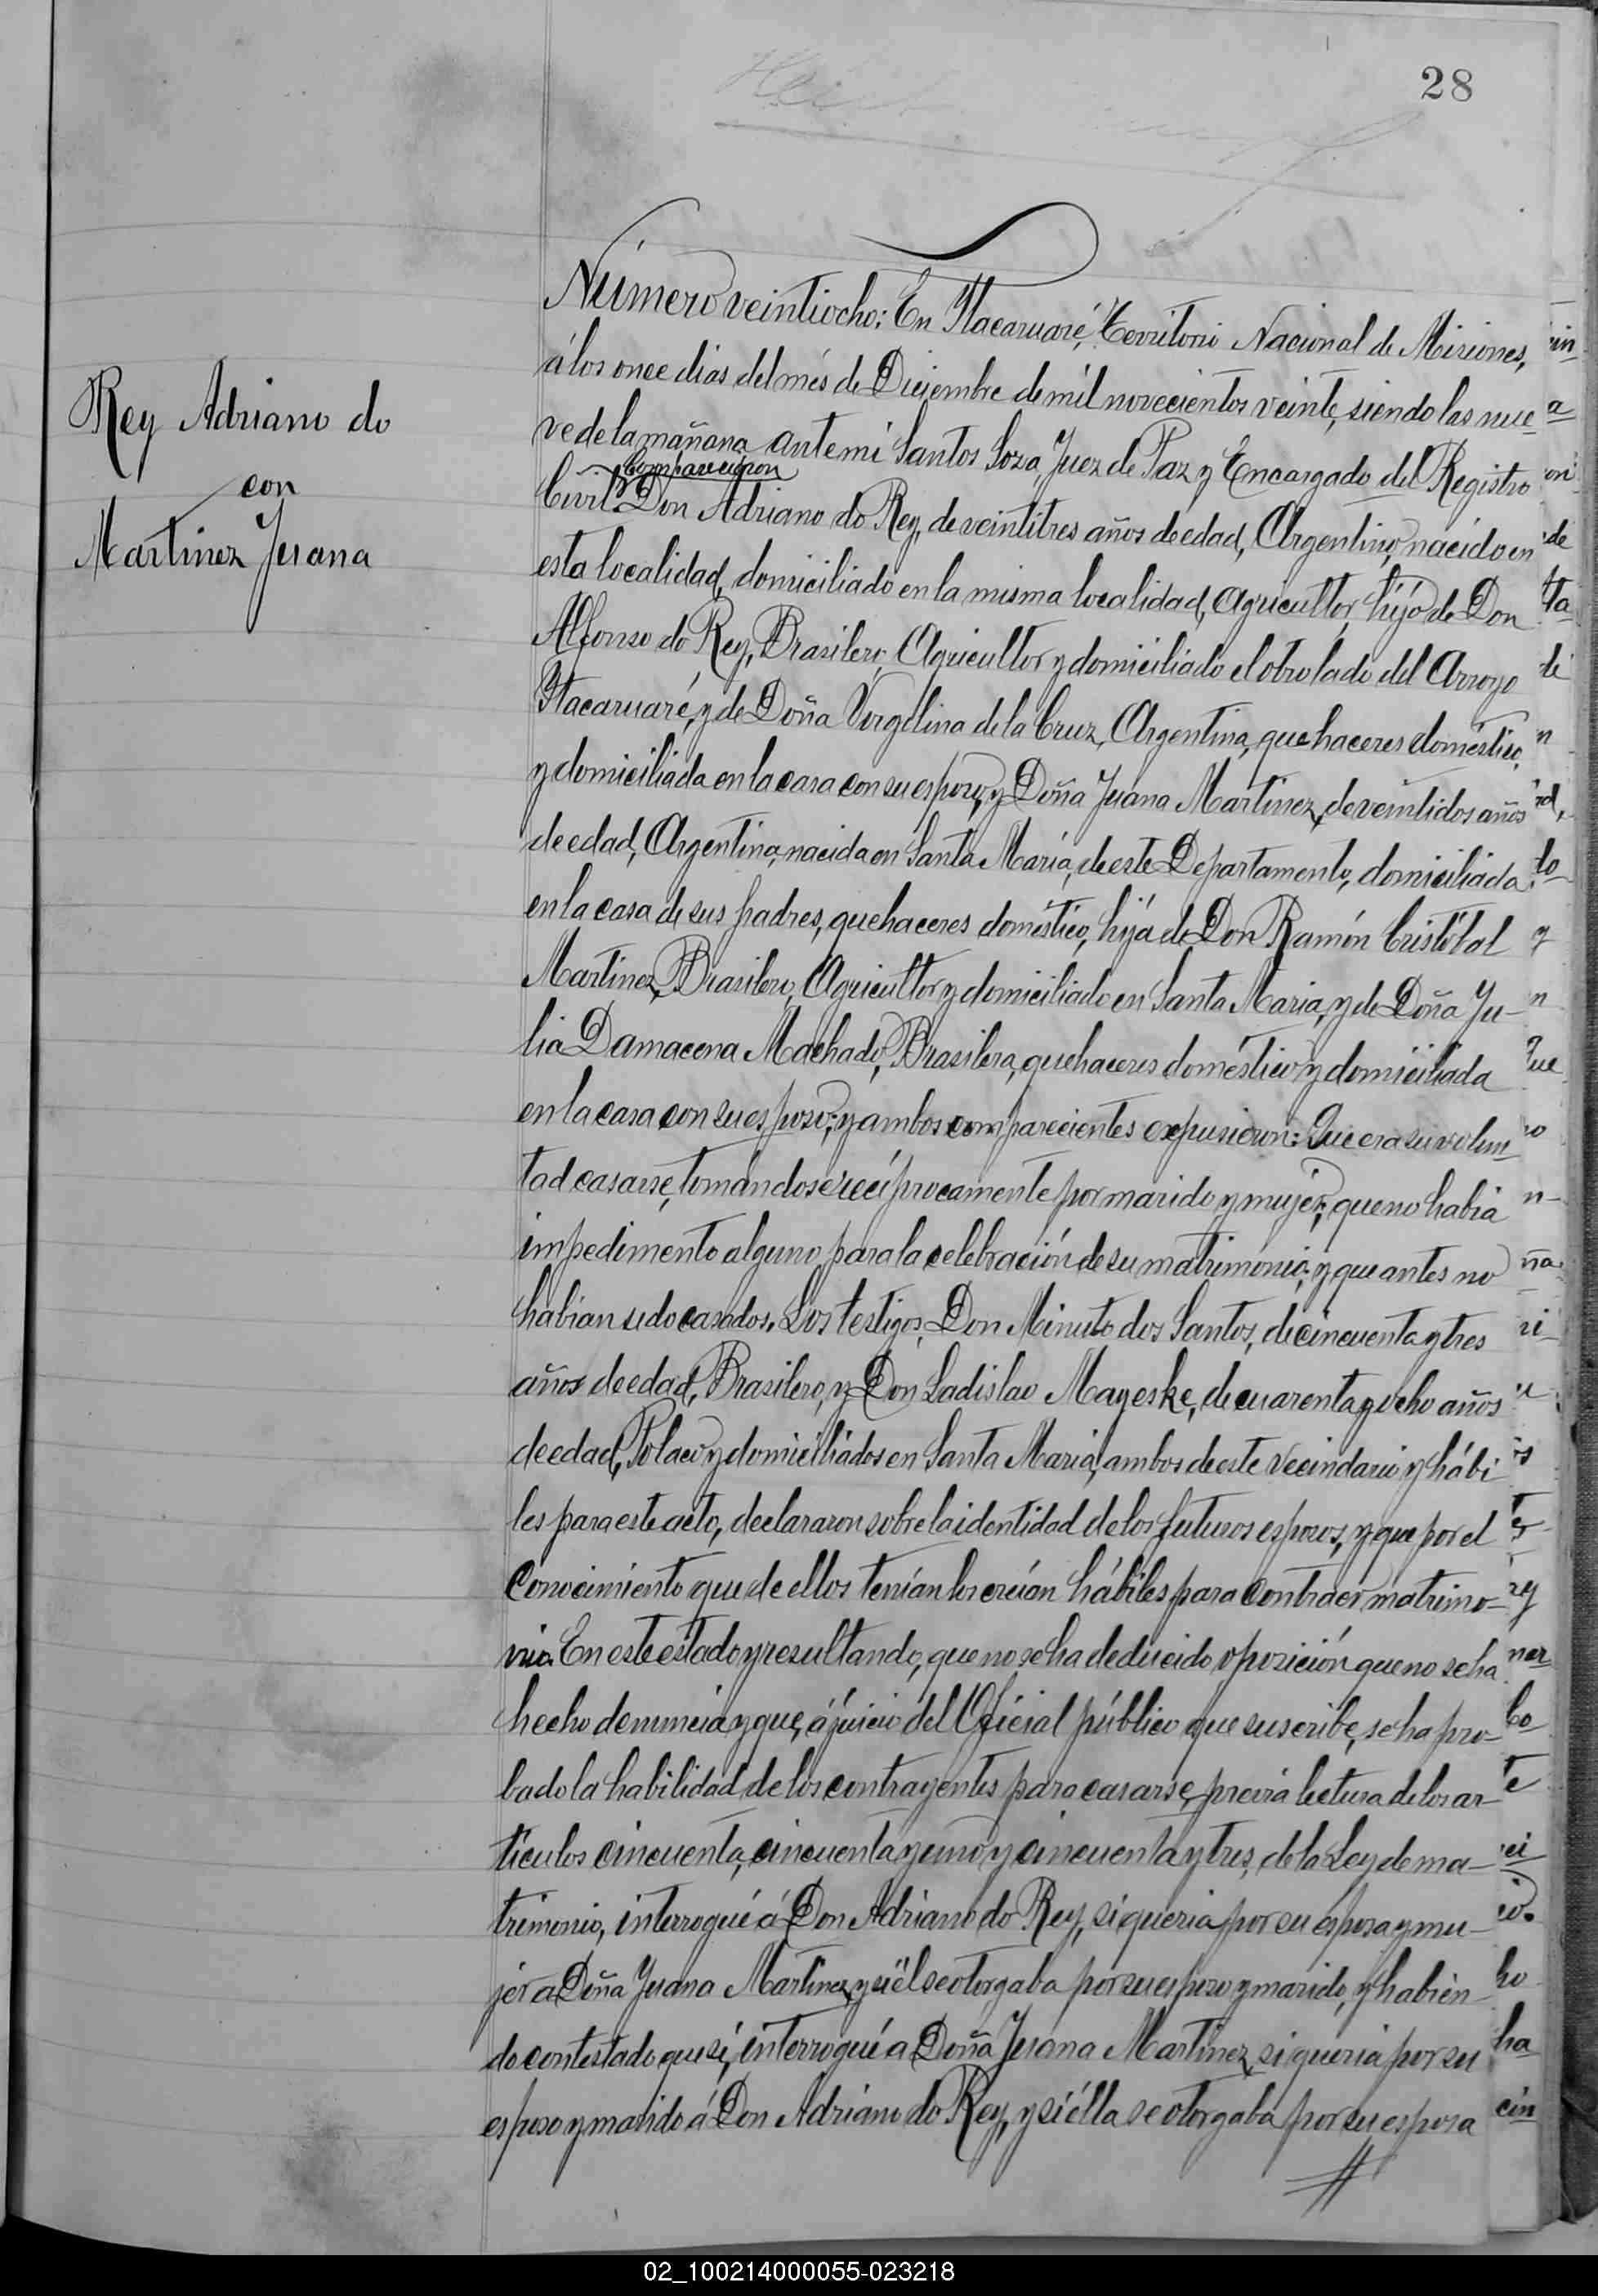 28
Rey Adriano do
con
Martinez Juana
Número veintiocho: En Itacaruaré, Territorio Nacional de Misiones,
á los once dias del més de Diciembre de mil novecientos veinte, siendo las nue-
ve de la mañana ante mi Santos Soza, Juez de Paz y Encargado del Registro
Comparecieron
Civil Don Adriano do Rey, de veintitres años de edad, Argentino, nacido en
esta localidad, domiciliado en la misma localidad, Agricultor, hijo de Don
Alfonso do Rey, Brasilero, Agricultor y domiciliado el otro lado del Arroyo
Itacaruaré, y de Doña Vergelina de la Cruz, Argentina, quehaceres doméstico,
y domiciliada en la casa con su esposo, y Doña Juana Martinez, de veintidos años
de edad, Argentina, nacida en Santa María, de este Departamento, domiciliada
en la casa de sus padres, quehaceres doméstico, hija de Don Ramón Cristóbal
Martinez, Brasilero, Agricultor y domiciliado en Santa Maria, y de Doña Ju-
lia Damacena Machado, Brasilera, quehaceres doméstico y domiciliada
en la casa con su esposo; y ambos comparecientes expusieron: Que era su volun-
tad casarse, tomándose recíprocamente por marido y mujer; que no habia
impedimento alguno para la celebración de su matrimónio; y que antes no
habian sido casados. Los testigos, Don Minuto dos Santos, de cincuenta y tres
años de edad, Brasilero, y Don Ladislao Mayeske, de cuarenta y ocho años
de edad, Polaco y domiciliados en Santa Maria, ambos de este vecindario y hábi
les para este acto, declararon sobre la identidad de los futuros esposos, y que por el
Conocimiento que de ellos tenían los creían hábiles para contraer matrimo-
nio. En este estado y resultando, que no se ha deducido oposición que no se ha
hecho denuncia y que, á juicio del Oficial público que suscribe, se ha pro-
bado la habilidad de los contrayentes para casarse, previa lectura de los ar-
tículos cincuenta, cincuenta y uno y cincuenta y tres, de la Ley de ma-
trimonio, interrogué á Don Adriano do Rey, si queria por su esposa y mu-
jer a Doña Juana Martinez, y si él se otorgaba por su esposo y marido, y habien-
do contestado que sí, interrogué a Doña Juana Martinez si queria por su
esposo y marido á Don Adriano do Rey, y si élla se otorgaba por su esposa
02_100214000055-023218